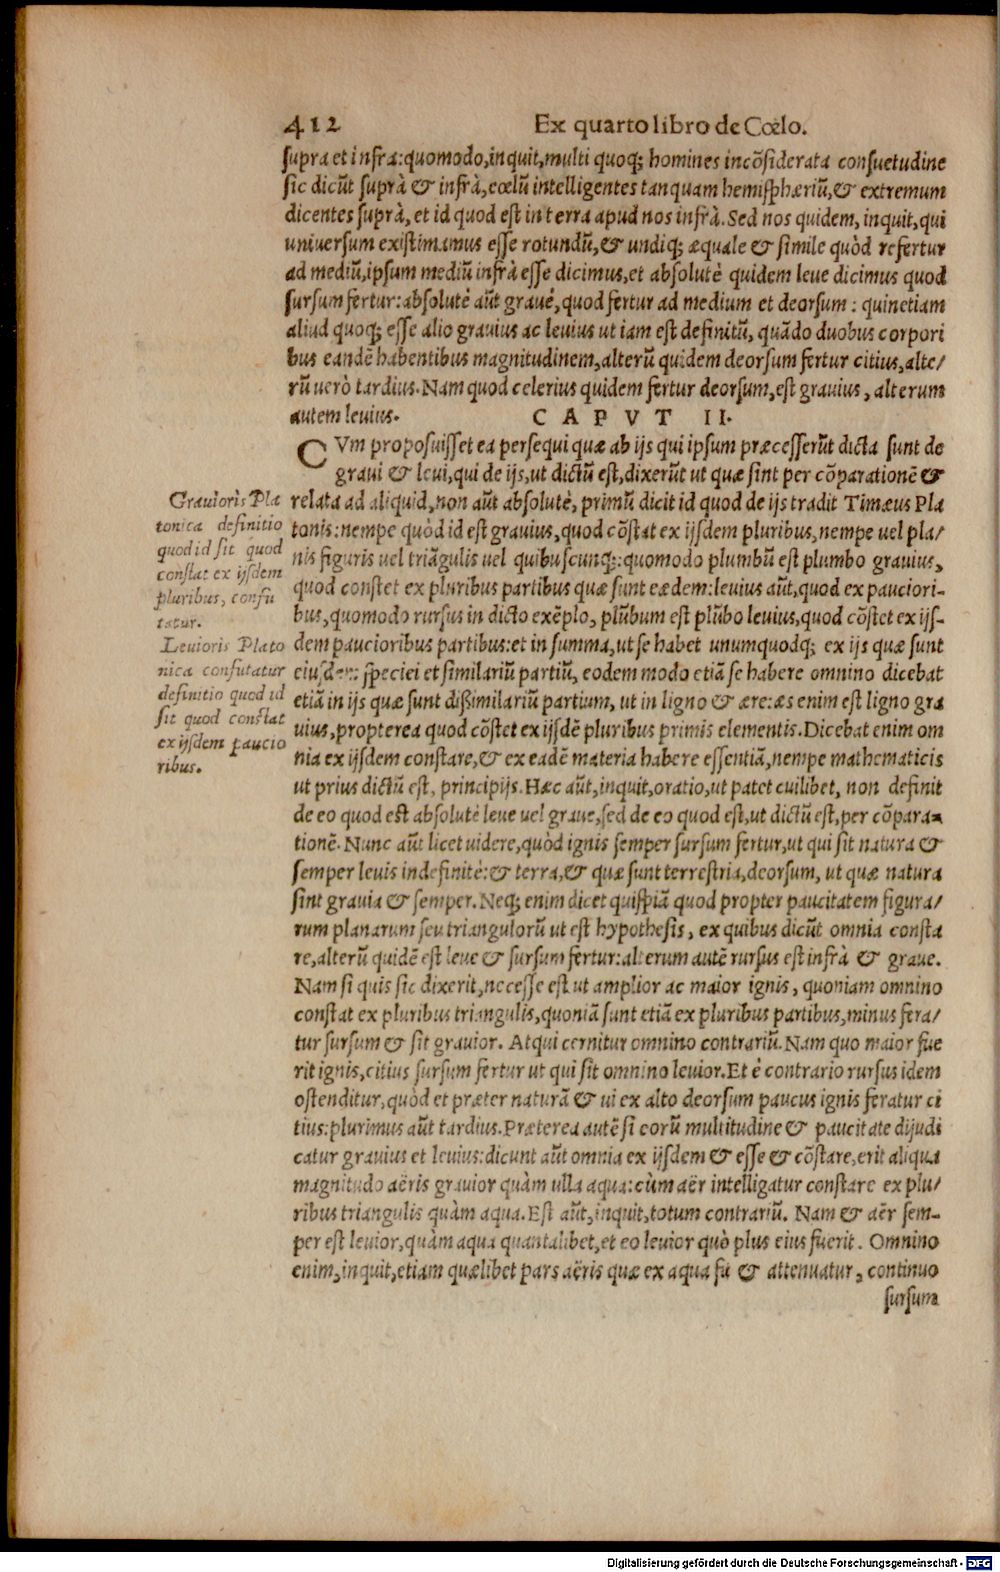 412 Ex quarto libro de Cœlo.
supra et infra: quomodo, inquit, multi quoq; homines incõsiderata consuetudine
sic dicũt suprà & infrà, cœlũ intelligentes tanquam hemisphæriũ, & extremum
dicentes suprà, et id quod est in terra apud nos infrà. Sed nos quidem, inquit, qui
universum existimamus esse rotundũ, & undiq; æquale & simile quòd refertur
ad mediũ, ipsum mediũ infrà esse dicimus, et absolutè quidem leve dicimus quod
sursum fertur: absolutè aũt gravè, quod fertur ad medium et deorsum: quinetiam
aliud quoq; esse alio gravius ac levius ut iam est definitũ, quãdo duobus corpori
bus eandẽ habentibus magnitudinem, alterũ quidem deorsum fertur citius, alte/
rũ verò tardius. Nam quod celerius quidem fertur deorsum, est gravius, alterum
autem levius. CAPVT II.
CVm proposuisset ea persequi quæ ab ijs qui ipsum præcesserũt dicta sunt de
gravi & levi, qui de ijs, ut dictũ est, dixerũt ut quæ sint per cõparationẽ &
relata ad aliquid, non aũt absolutè, primũ dicit id quod de ijs tradit Timæus Pla
tonis: nempe quòd id est gravius, quod cõstat ex ijsdem pluribus, nempe vel pla/
nis figuris vel triãgulis vel quibuscunq;: quomodo plumbũ est plumbo gravius,
quod constet ex pluribus partibus quæ sunt eædem: levius aũt, quod ex pauciori-
bus, quomodo rursus in dicto exẽplo, plũbum est plũbo levius, quod cõstet ex ijs-
dem paucioribus partibus: et in summa, ut se habet unumquodq; ex ijs quæ sunt
eiusdem speciei et similariũ partiũ, eodem modo etiã se habere omnino dicebat
etiã in ijs quæ sunt dissimilariũ partium, ut in ligno & ære: æs enim est ligno gra
vius, propterea quod cõstet ex ijsdẽ pluribus primis elementis. Dicebat enim om
nia ex ijsdem constare, & ex eadẽ materia habere essentiã, nempe mathematicis
ut prius dictũ est, principijs. Hæc aũt, inquit, oratio, ut patet cuilibet, non definit
de eo quod est absolutè leve vel grave, sed de eo quod est, ut dictũ est, per cõpara-
tionẽ. Nunc aũt licet videre, quòd ignis semper sursum fertur, ut qui sit natura &
semper levis indefinitè: & terra, & quæ sunt terrestria, deorsum, ut quæ natura
sint gravia & semper. Neq; enim dicet quispiã quod propter paucitatem figura/
rum planarum seu triangulorũ ut est hypothesis, ex quibus dicũt omnia consta
re, alterũ quidẽ est leve & sursum fertur: alterum autẽ rursus est infrà & grave.
Nam si quis sic dixerit, necesse est ut amplior ac maior ignis, quoniam omnino
constat ex pluribus triangulis, quoniã sunt etiã ex pluribus partibus, minus fera/
tur sursum & sit gravior. Atqui cernitur omnino contrariũ. Nam quo maior fue
rit ignis, citius sursum fertur ut qui sit omnino levior. Et è contrario rursus idem
ostenditur, quòd et præter naturã & vi ex alto deorsum paucus ignis feratur ci
tius: plurimus aũt tardius. Præterea autẽ si eorũ multitudine & paucitate dijudi
catur gravius et levius: dicunt aũt omnia ex ijsdem & esse & cõstare, erit aliqua
magnitudo aëris gravior quàm ulla aqua: cùm aër intelligatur constare ex plu/
ribus triangulis quàm aqua. Est aũt, inquit, totum contrariũ. Nam & aër sem-
per est levior, quàm aqua quantalibet, et eo levior quò plus eius fuerit. Omnino
enim, inquit, etiam quælibet pars aëris quæ ex aqua fit & attenuatur, continuo
sursum
Gravioris Pla
tonica definitio
quod id sit quod
constat ex ijsdem
pluribus, confu
tatur.
Levioris Plato
nica confutatur
definitio quod id
sit quod constat
ex ijsdem paucio
ribus.
Digitalisierung gefördert durch die Deutsche Forschungsgemeinschaft - DFG